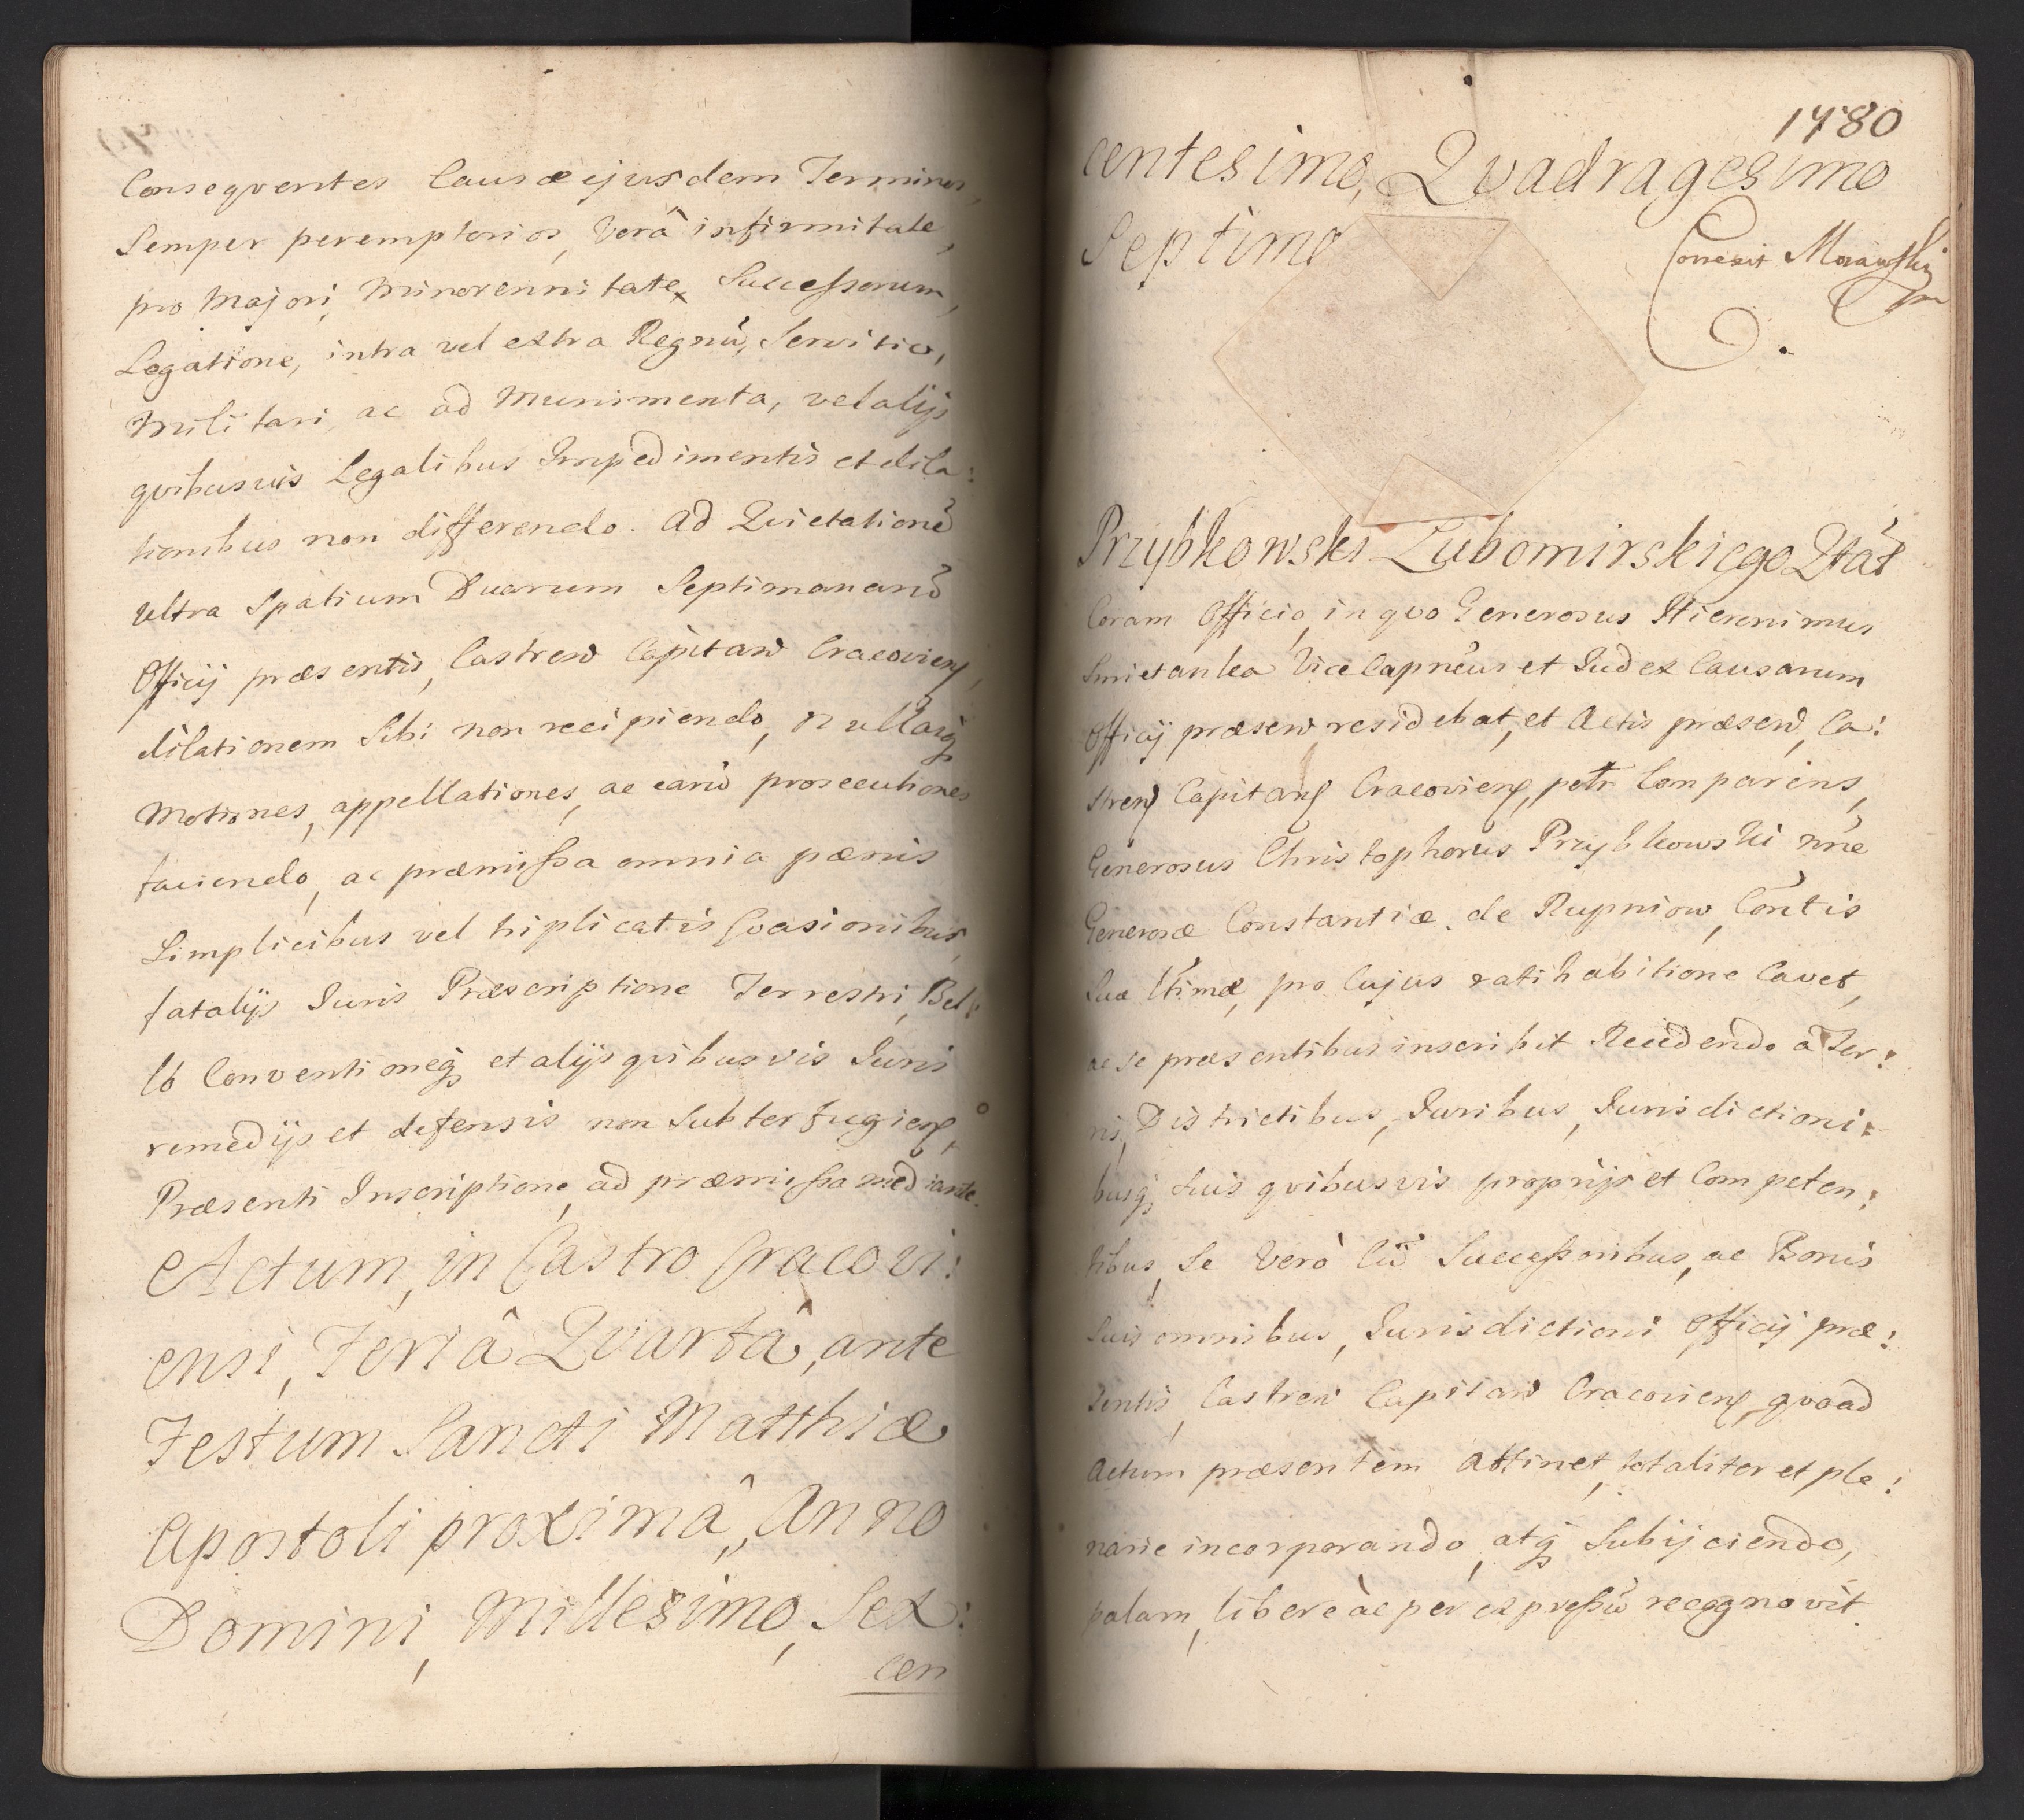 Conseqventes Causæ ejusdem Terminos,
Semper peremptorios, Verâ infirmitate,
pro Majori, Minorennitate, Successorum,
Legatione, intra vel extra Regnũ, Servitio,
Militari, ac ad Munimenta, vel alijs
qvibusvis Legalibus Impedimentis et dila:
tionibus non differendo. Ad Qvietationẽ
ultra Spatium Duarum Septimanarũ
Officij præsentis, Castreñ Capitañ Cracovieñ,
dilationem Sibi non recipiendo, Nullasq;
Motiones, appellationes, ac earũ prosecutiones
faciendo, ac præmissa omnia pænis
Simplicibus vel triplicatis Evasionibus,
fatalijs Juris Præscriptione Terrestri, Bel:
lô Conventioneq; et alijs qvibusvis Juris
remedijs et defensis non Subterfugieñ,
Præsenti Inscriptione, ad præmissa mediante.
Actum, in Castro Cracovi:
ensi, Feriâ Qvartâ, ante
Festum Sancti Matthiæ
Apostoli proximâ, Anno
Domini, Millesimo, Sex:
cen
1480
centesimo, Qvadragesimo
Septimo
Correxit Morawski
Przybkowski Lubomirskiego Qtat
Coram Officio, in qvo Generosus Hieronimus
Smietanka Vice Capneus et Judex Causarum
Officij præseñ residebat, et Actis præseñ, Ca:
streñ Capitañ Cracovieñ, petr Comparens,
Generosus Christophorus Przybkowski nñe
Generosæ Constantiæ de Rupniow, Contis
Suæ Ltimæ, pro Cujus ratihabitione Cavet,
ac se præsentibus inscribit Recedendo à Ter:
ris, Districtibus, Juribus, Jurisdictioni:
busq; Suis qvibusvis proprijs et Competen:
tibus, Se Verò Cũ Successoribus, ac Bonis
Suis omnibus, Jurisdictioni Officij præ:
sentis, Castreñ Capitañ Cracovieñ, qvoad
Actum præsentem Attinet, totaliter et ple:
narie incorporando, atq; Subijciendo,
palam, libere àc per expressũ recognovit.